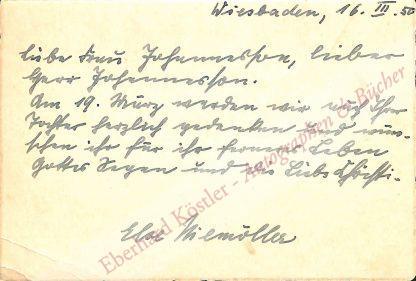 Wiesbaden, 16. III. 50
Liebe Frau Johannesson, lieber
Herr Johannesson.
Am 19. März werden wir auch Ihrer
Tochter herzlich gedenken und wün-
schen ihr für ihr ferneres Leben
Gottes Segen und alles Liebe
Else Niemöller
Eberhard Köstler - Autographen & Bücher